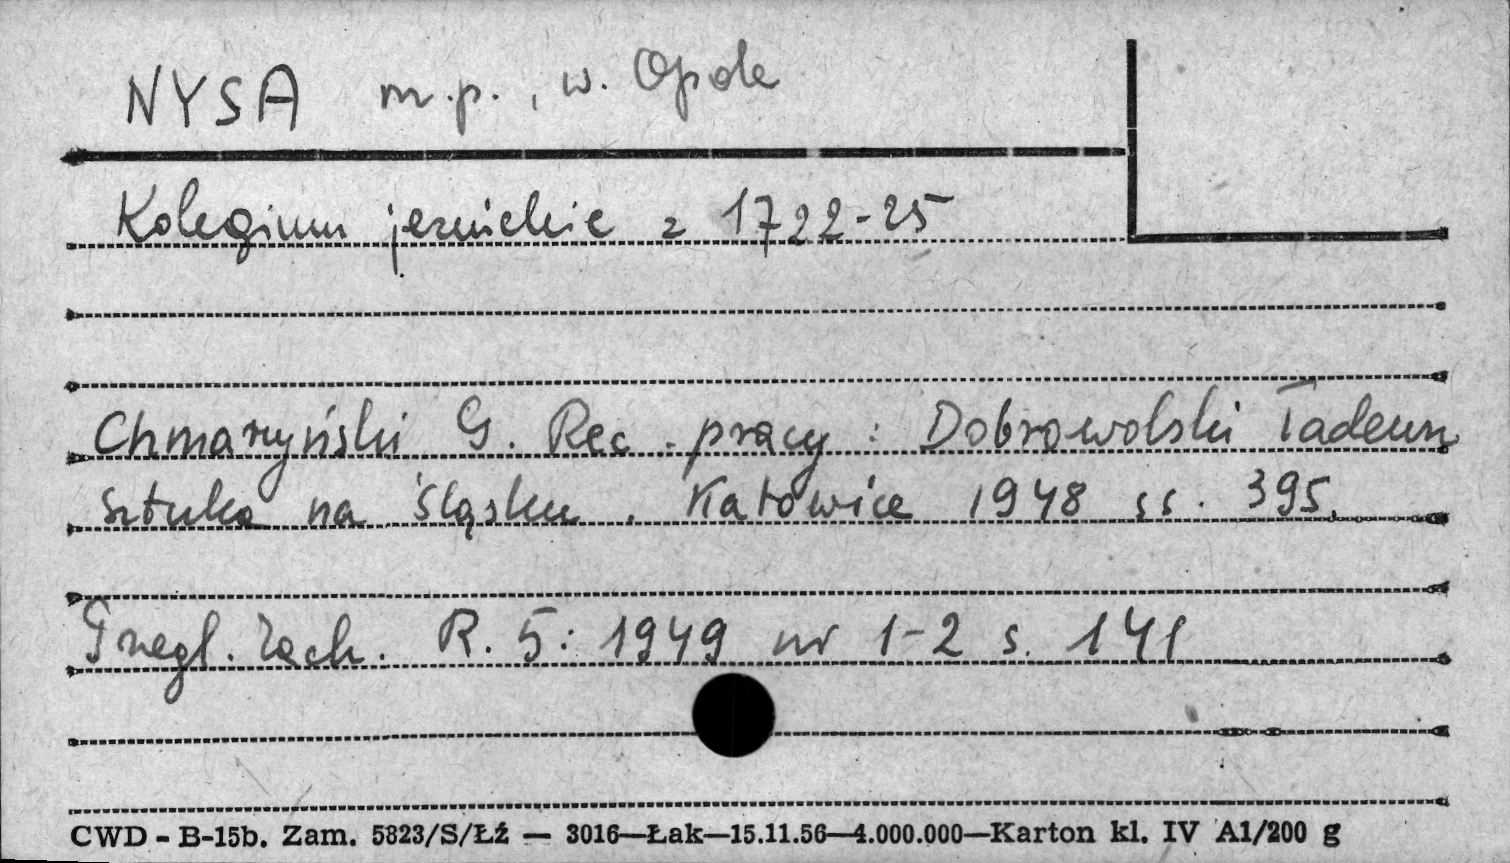 NYSA m.p., w. Opole
Kolegium jezuickie z 1722-25
Chmarzyński G. Rec. pracy: Dobrowolski Tadeusz
Sztuka na Śląsku. Katowice 1948 ss. 395.
Przegl. Zach. R. 5: 1949 nr 1-2 s. 141
CWD - B-15b. Zam. 5823/S/Łź — 3016—Łak—15.11.56—4.000.000—Karton kl. IV A1/200 g